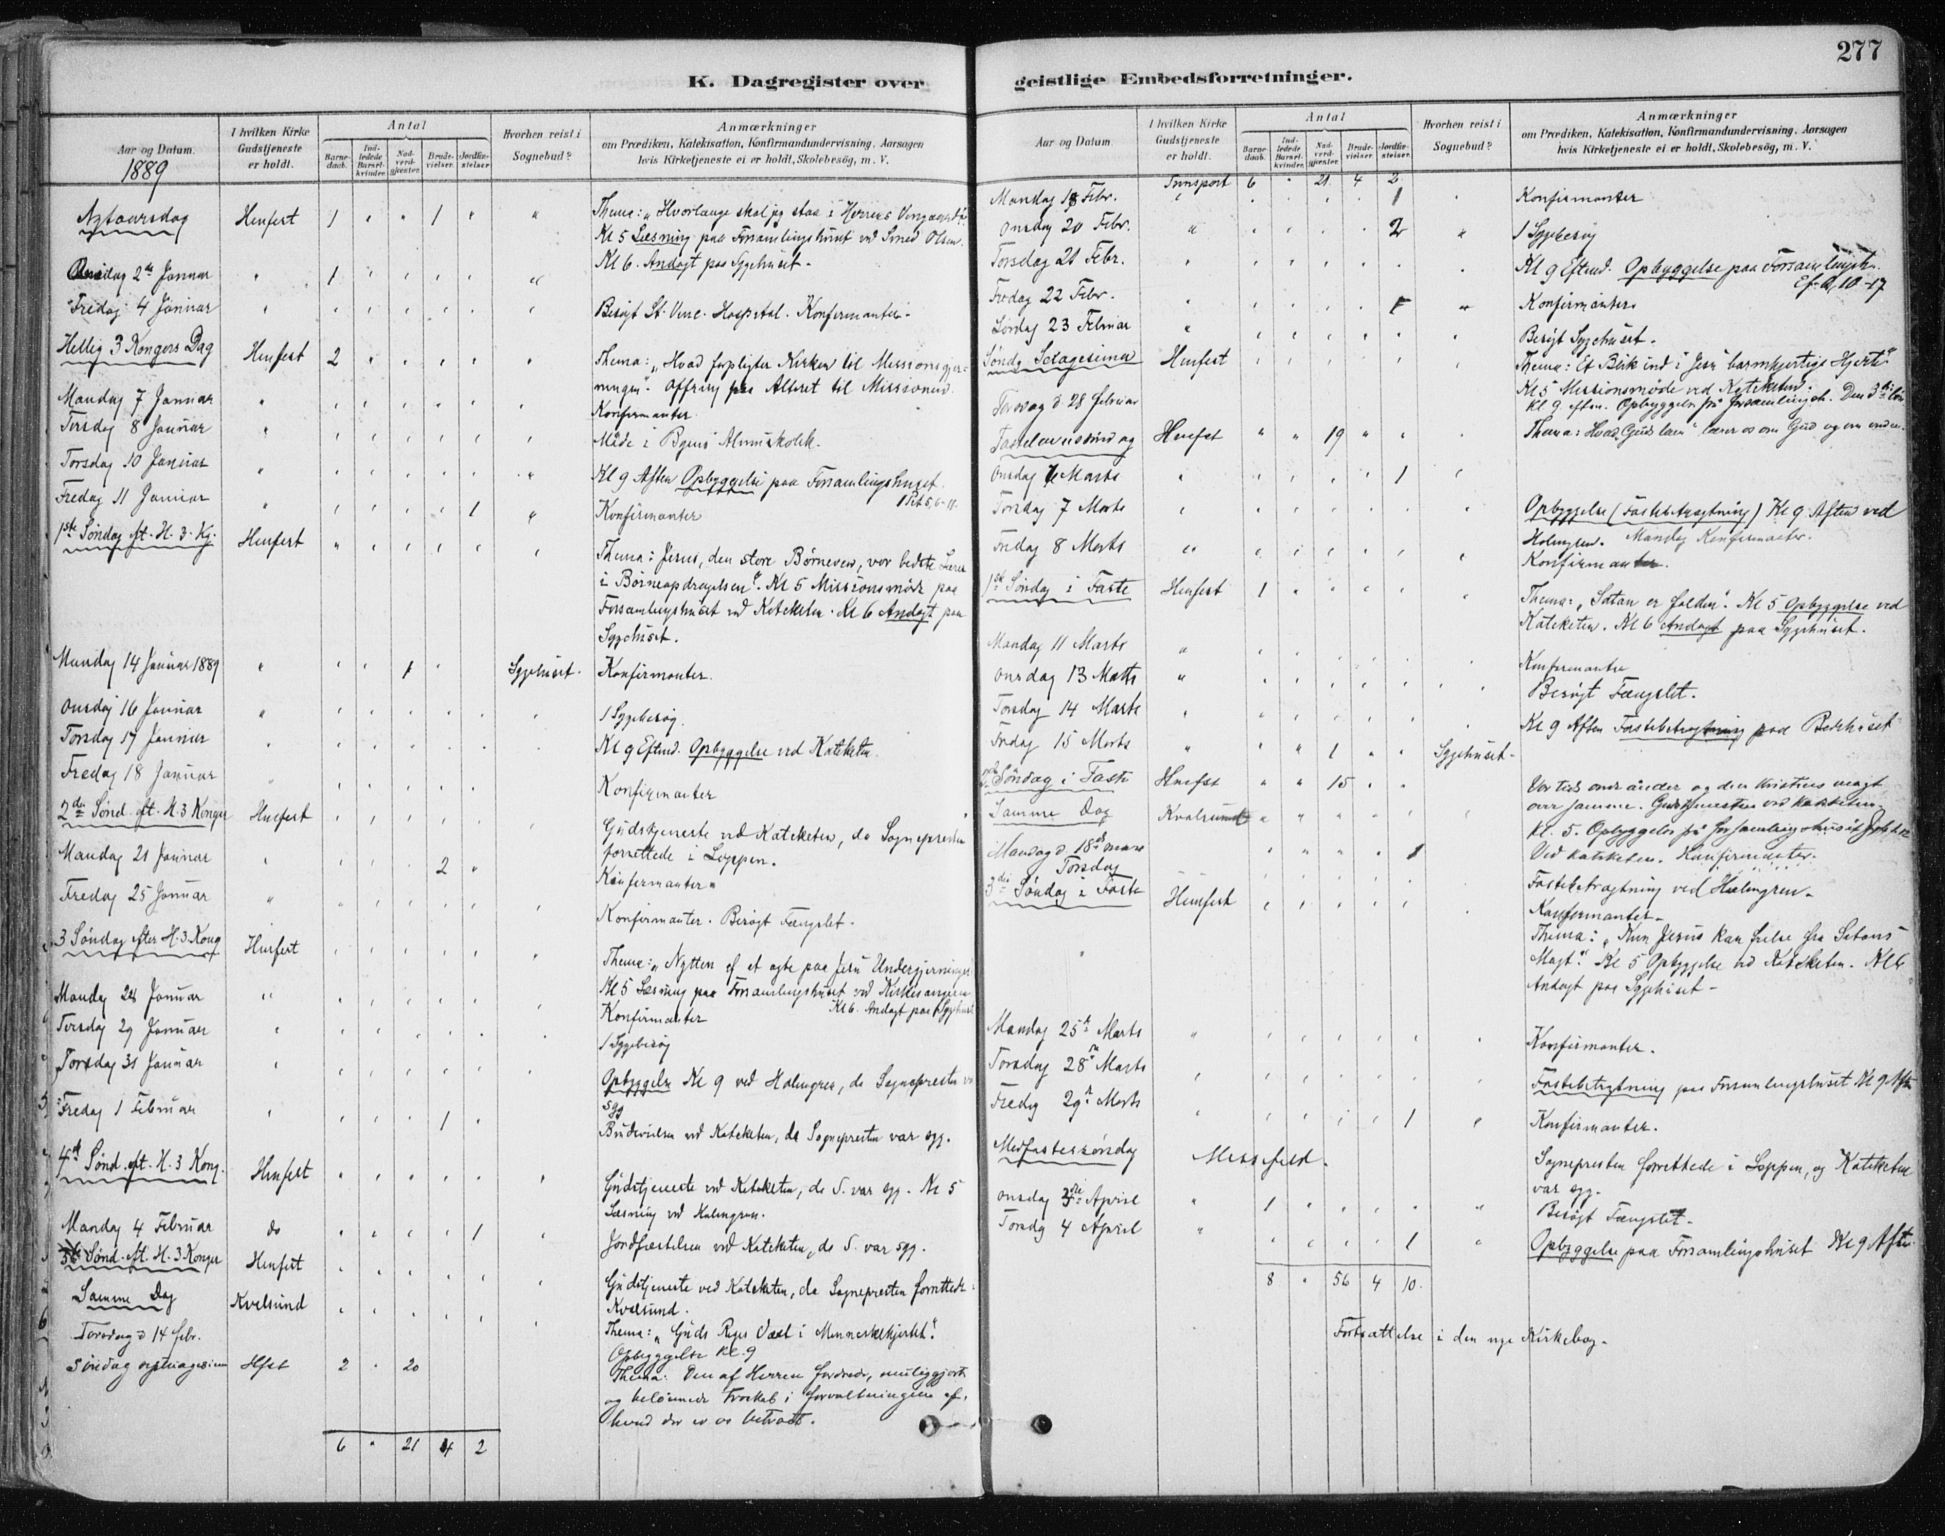 277
K. Dagregister over geistlige Embedsforretninger.
Aar og Datum.
1889
I hvilken Kirke Gudstjeneste er holdt.
Antal
Barnedaab.
Indledede Barselkvinder.
Nadverdgjester.
Brudevielser.
Jordfæstelser.
Hvorhen reist i Sognebud?
Anmærkninger
om Prædiken, Katekisation, Konfirmandundervisning, Aarsagen
hvis Kirketjeneste ei er holdt, Skolebesøg, m. V.
Nytaarsdag Hmfest 1 " " 1 " " Thema: "Hvorlænge skal jeg staa i Herrens Vingaard?"
Kl 5 Læsning paa Forsamlingshuset ved Svend Olsen.
Kl 6. Andagt paa Sygehuset.
Onsdag 2de Januar " 1
Fredag 4 Januar Besøgt St. Vinc. Hospital. Konfirmanter.
Hellig 3 Kongers Dag Hmfest 2 Thema: "Hvad forpligter Kirken til Missionsgjerningen". Offring paa Alteret til Missionen.
Mandag 7 Januar Konfirmanter
Tirsdag 8 Januar Møde i Byens Almueskolek.
Torsdag 10 Januar Kl 9 Aften Opbyggelse paa Forsamlingshuset.
1 Pet 5, 6-11.
Fredag 11 Januar 1 Konfirmanter
1ste Søndag eft. H. 3. Kg. Hmfest Thema: Jesus, den store Børneven, vor bedste Lærer
i Børneopdragelsen". Kl 5 Missionsmøde paa
Forsamlingshuset ved Kateketen. Kl 6 Andagt paa
Sygehuset.
Mandag 14 Januar 1889 1 Sygehuset. Konfirmanter.
Onsdag 16 Januar 1 Sygebesøg.
Torsdag 17 Januar Kl 9 Eftmd. Opbyggelse ved Kateketen.
Fredag 18 Januar Konfirmanter
2den Sønd. eft. H. 3 Konger Hmfest Gudstjeneste ved Kateketen, da Sognepresten
forrettede i Loppen.
Mandag 21 Januar 2 Konfirmanter
Fredag 25 Januar Konfirmanter. Besøgt Fængslet.
3 Søndag efter H. 3. Kong Hmfest Thema: "Nytten af at agte paa Jesu Undergjerninger.
Kl 5 Læsning paa Forsamlingshuset ved Kirkesangeren
Kl 6. Andagt paa Sygehuset
Mandag 28 Januar Konfirmanter
Tirsdag 29 Januar 1 Sygebesøg
Torsdag 31 Januar Opbyggelse Kl 9 ved Holmgren, da Sognepresten var
syg
Fredag 1 Februar 1 Brudevielsen ved Kateketen, da Sognepresten var syg.
4de Sønd. eft. H. 3 Kong. Hmfest Gudstjeneste ved Kateketen, da S. var syg. Kl 5
Læsning ved Holmgren.
Mandag 4 Februar do 1 Jordfæstelsen ved Kateketen, da S. var syg.
5te Sønd. eft. H. 3 Konger Hmfest Gudstjeneste ved Kateketen, da Sognepresten forrettede i
Kvalsund.
Samme Dag Kvalsund Thema: "Guds Riges Væxt i Menneskehjertet".
Torsdag d 14 febr. Opbyggelse Kl. 9
Søndag septuagesima Hfst 2 " 20 Thema: Den af Herren fordrede, muliggjorte
og belønnede Troskab i forvaltningen af,
hvad der er os betroet.
6 " 21 4 2
Aar og Datum
I hvilken Kirke Gudstjeneste er holdt.
Antal
Barnedaab.
Indledede Barselkvinder.
Nadverdgjester.
Brudevielser.
Jordfæstelser.
Hvorhen reist i Sognebud?
Anmærkninger
om Prædiken, Katekisation, Konfirmandundervisning, Aarsagen
hvis Kirketjeneste ei er holdt, Skolebesøg, m. V.
Transport 6 " 21 4 2
Mandag 18 Febr. 1 Konfirmanter
Onsdag 20 Febr. 2 1 Sygebesøg
Torsdag 21 Febr. Kl 9 Eftmd. Opbyggelse paa Forsamlingsh.
Ef. 6, 10-17
Fredag 22 Febr. 1 Konfirmanter
Lørdag 23 Februar Besøgt Sygehuset.
Sønd. Sexagesima Hmfest Thema: Et Blik ind i Jesu barmhjertige Hjerte"
Kl 5 Missionsmøde ved Kateketen.
Torsdag d. 28 februar Kl 9 aften. Opbyggelse på forsamlingsh.
Fastelavnssøndag Hmfst " " 19 " " Thema: Hvad "Guds lam" lærer os om Gud og om
Onsdag 6 Marts 1
Torsdag 7 Marts Opbyggelse (Fastebetragtning) Kl 9 Aften ved
Holmgren. Mandag Konfirmanter.
Fredag 8 Marts Konfirmanter.
1ste Søndag i Faste Hmfest 1 Thema: "Satan er falden". Kl 5 Opbyggelse ved
Kateketen. Kl 6 Andagt paa Sygehuset.
Mandag 11 Marts Konfirmanter
Onsdag 13 Marts Besøgt Fængslet.
Torsdag 14 Marts Kl 9 Aften Fastebetragtning paa Bedehuset
Fredag 15 Marts 1 Sygehuset.
2den Søndag i Faste Hmfst " " 15 Vor tids onde ånder og den kristnes magt
over samme. Gudstjenesten ved kateketen
Samme Dag Kvalsund Kl. 5. Opbyggelse på forsamlingshuset
Mandag d. 18de mars 1 Ved kateketen. Konfirmanter.
Torsdag Fastebetragtning ved Holmgren.
Konfirmanter.
3die Søndag i Faste Hmfest Thema: "Kun Jesus kan frelse fra Satans
Magt". Kl 5 Opbyggelse ved Kateketen. Kl 6
Andagt paa Sygehuset.
Mandag 25de Marts Konfirmanter.
Torsdag 28de Marts Fastebetragtning paa Forsamlingshuset Kl 9 Aften
Fredag 29de Marts 1 Konfirmanter.
Midfastesøndag Messefald. Sognepresten forrettede i Loppen, og Kateketen
var syg.
Onsdag 3die April 1 Besøgt Fængslet.
Torsdag 4 April 1 Opbyggelse paa Forsamlingshuset Kl 9 Aften.
8 " 56 4 10.
Fortsættelse i den nye Kirkebog.